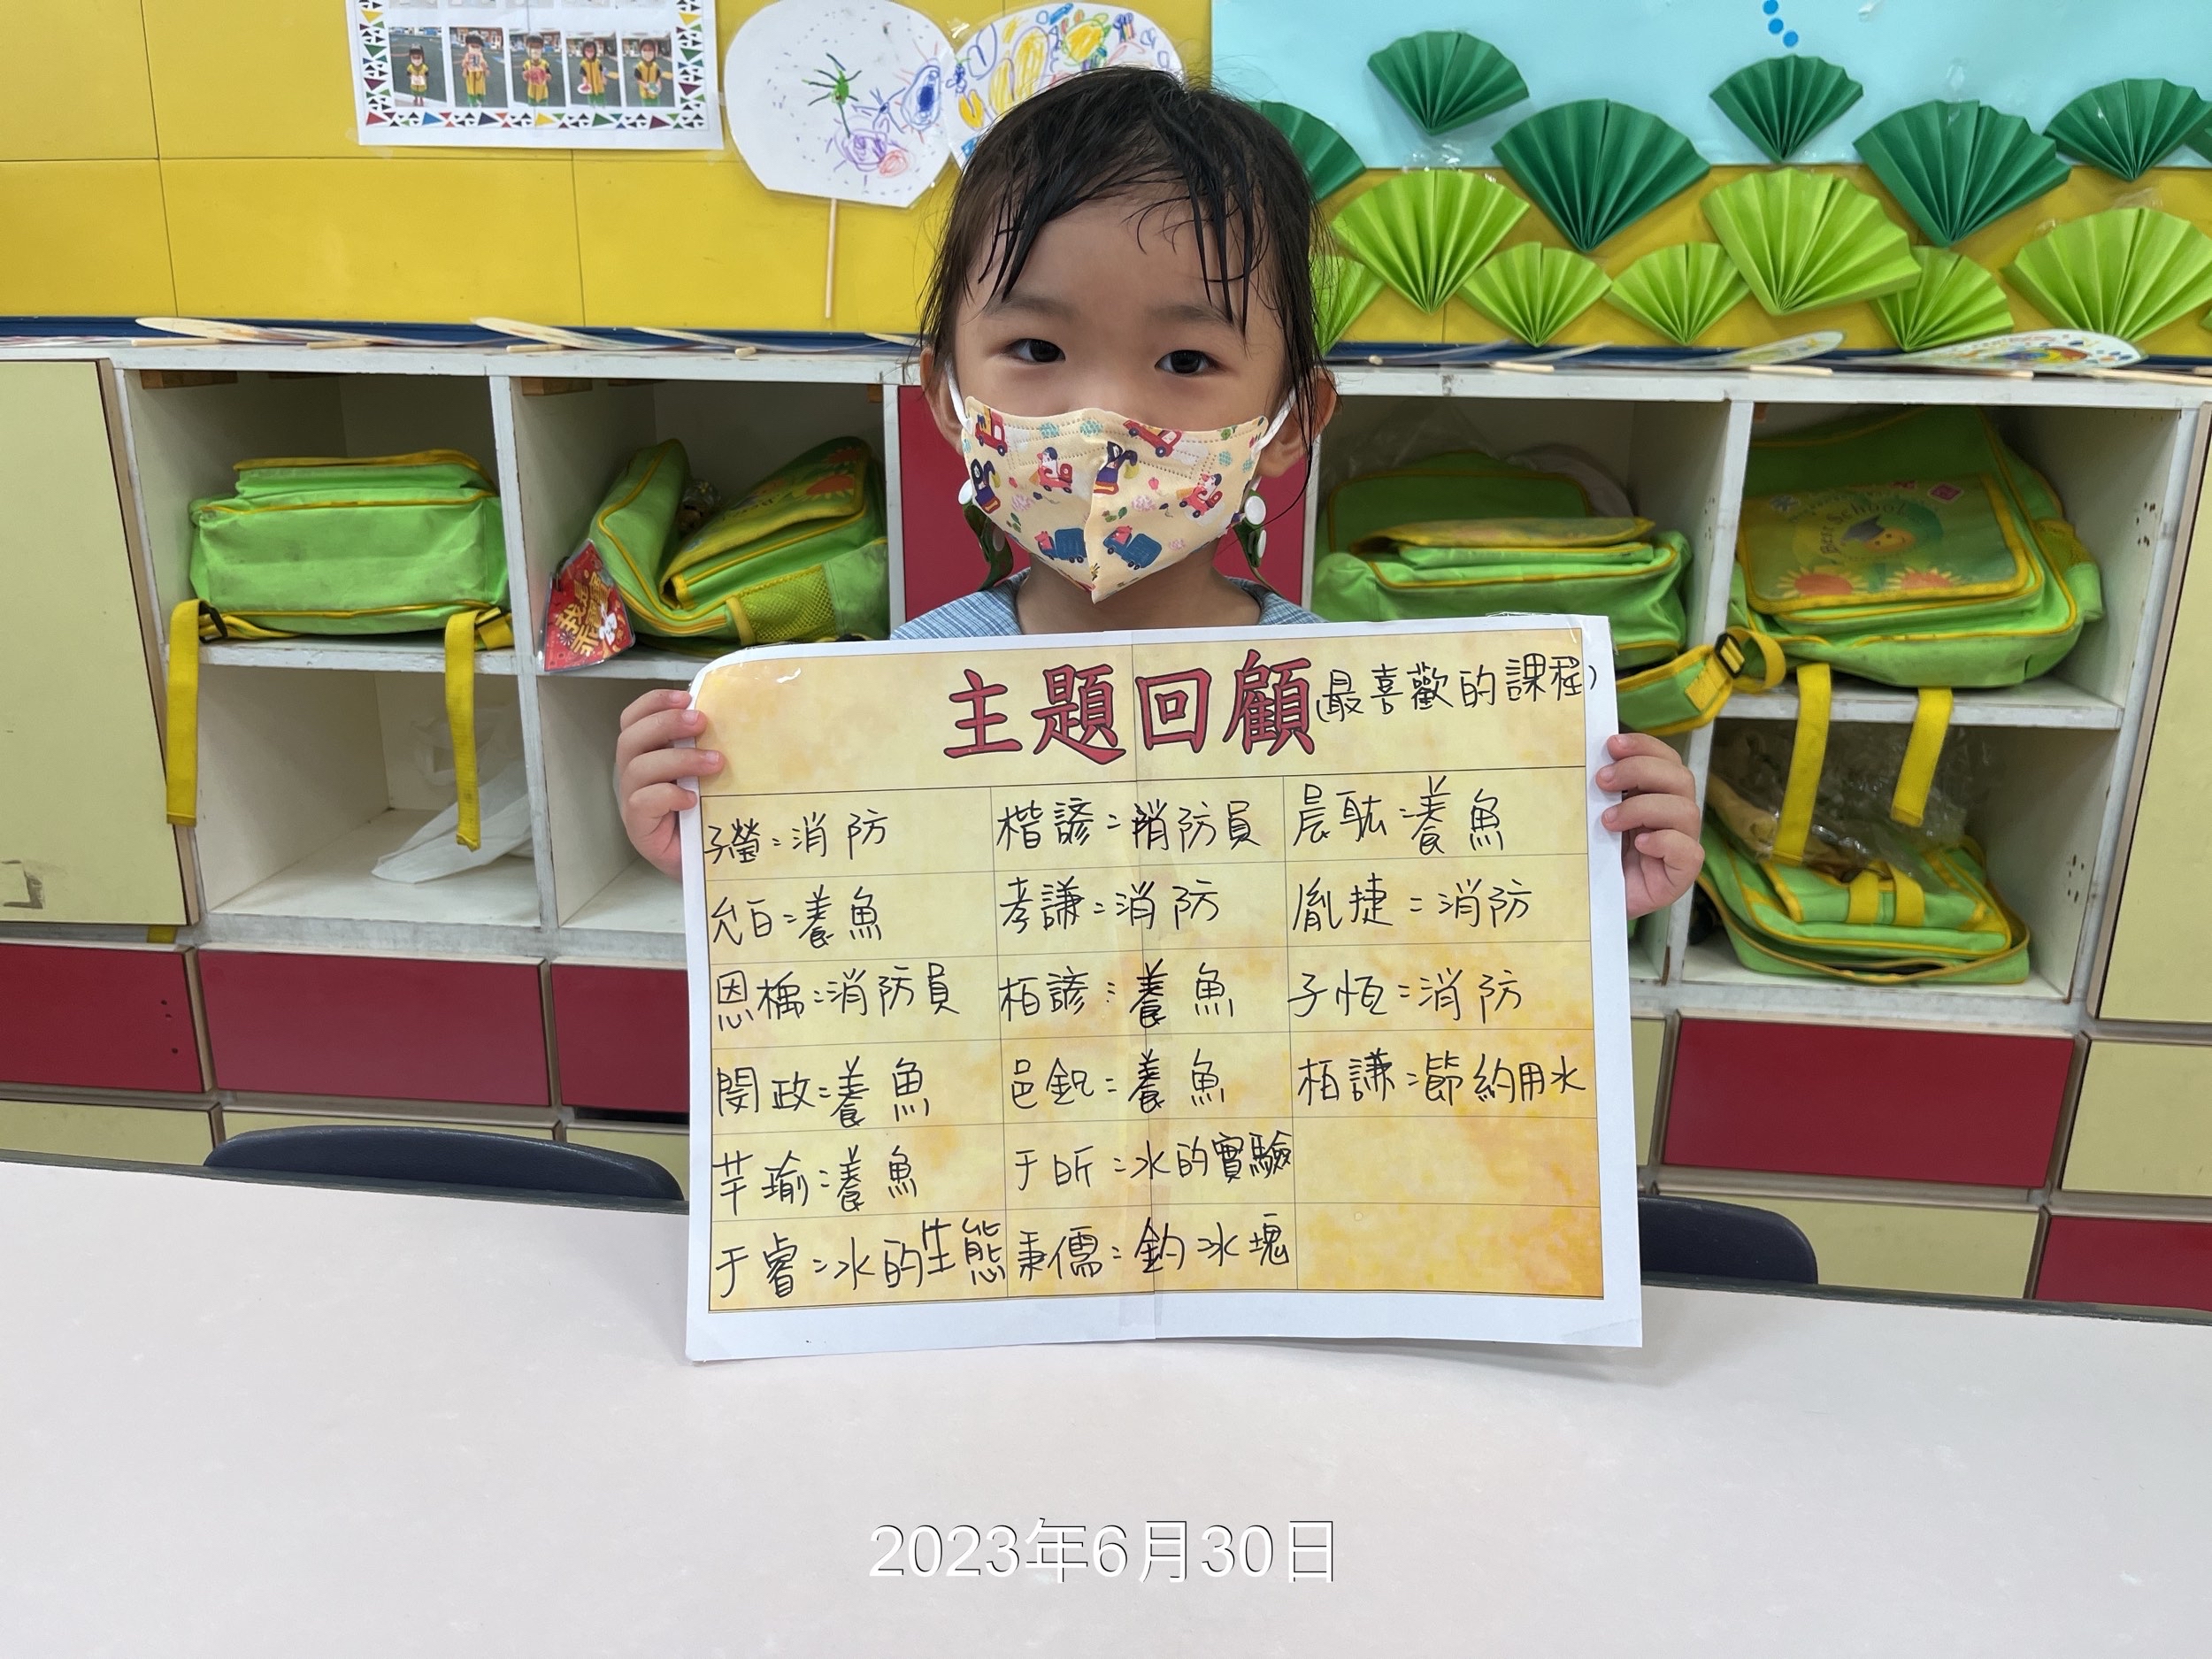 主題回顧(最喜歡的課程)
子瑩:消防
楷諺:消防員
晨耘:養魚
允百:養魚
孝謙:消防
胤捷:消防
恩楀:消防員
栢諺:養魚
子恆:消防
閔政:養魚
邑鈮:養魚
栢謙:節約用水
芊瑜:養魚
于昕:冰的實驗
于睿:水的生態
秉儒:釣冰塊
Best School
2023年6月30日